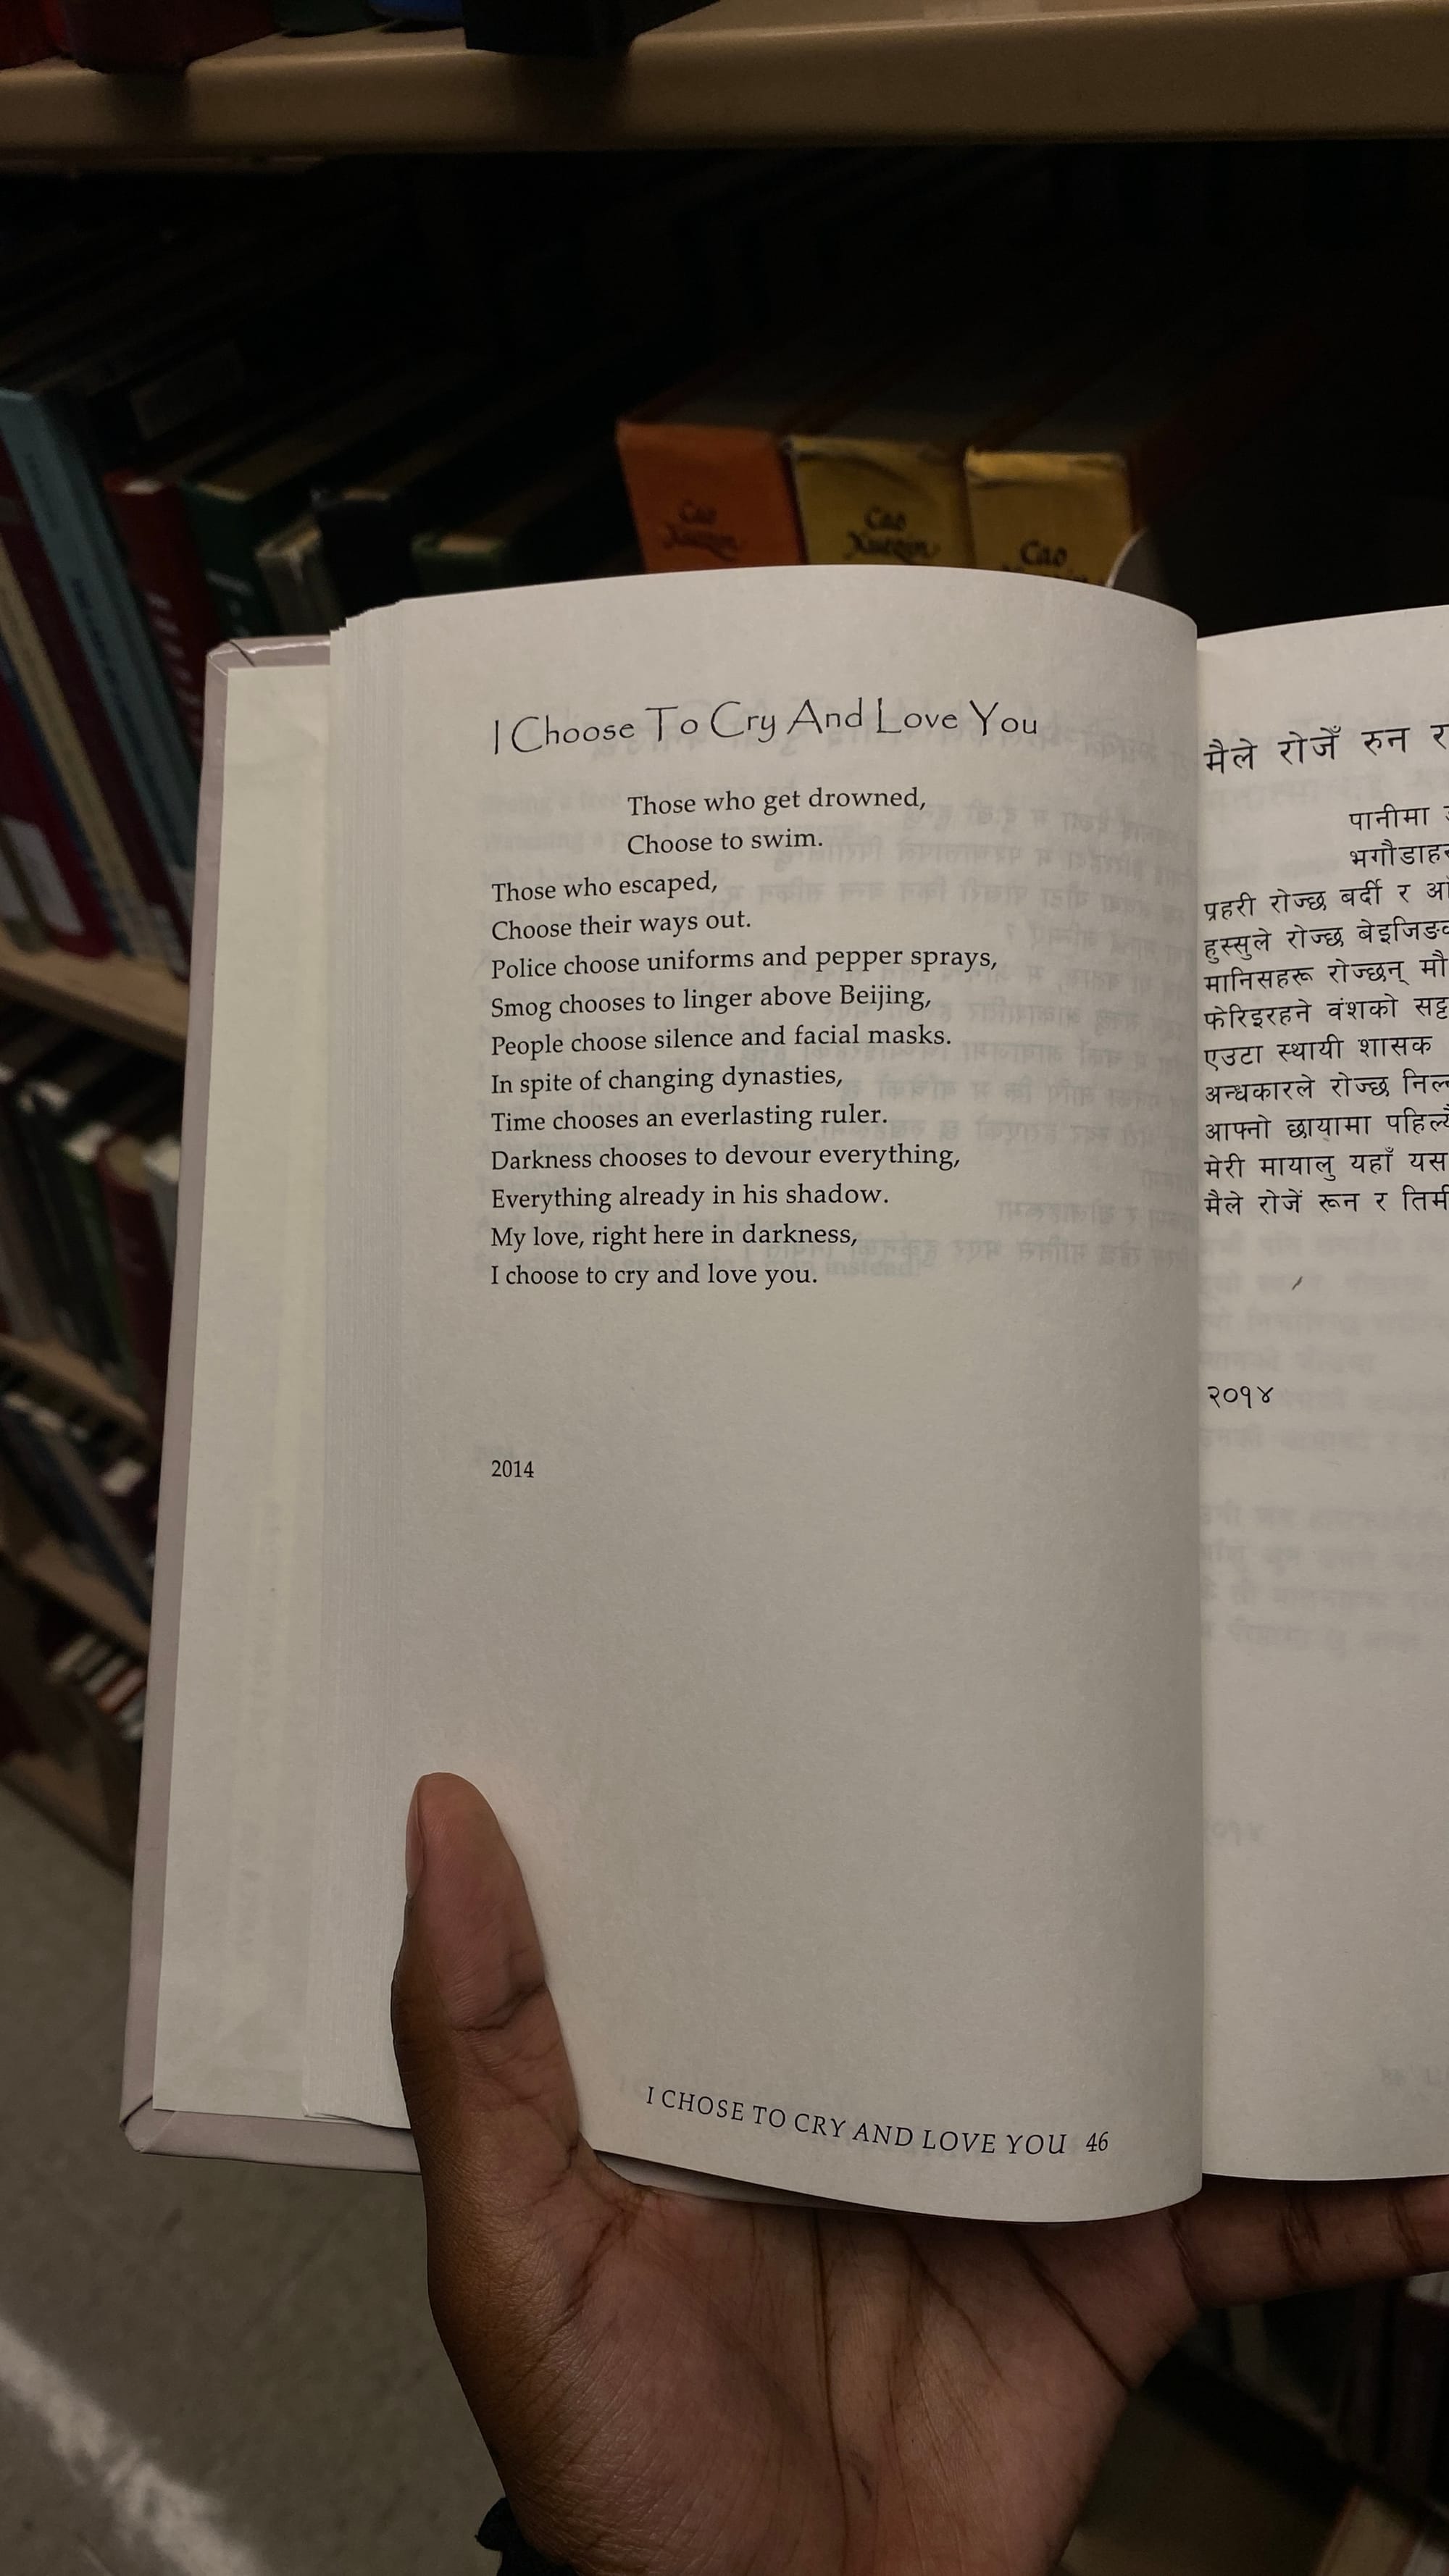 Cao
Xueqin
Cao
Xueqin
Cao
I Choose To Cry And Love You
Those who get drowned,
Choose to swim.
Those who escaped,
Choose their ways out.
Police choose uniforms and pepper sprays,
Smog chooses to linger above Beijing,
People choose silence and facial masks.
In spite of changing dynasties,
Time chooses an everlasting ruler.
Darkness chooses to devour everything,
Everything already in his shadow.
My love, right here in darkness,
I choose to cry and love you.
2014
I CHOSE TO CRY AND LOVE YOU 46
मैले रोजेँ रुन र
पानीमा
प्रहरी रोज्छ बर्दी र
हुस्सुले रोज्छ
मानिसहरू रोज्छन्
फेरिइरहने वंशको
एउटा स्थायी शासक
अन्धकारले रोज्छ
आफ्नो छायामा
मेरी मायालु यहाँ
मैले रोजें रून र
२०१४